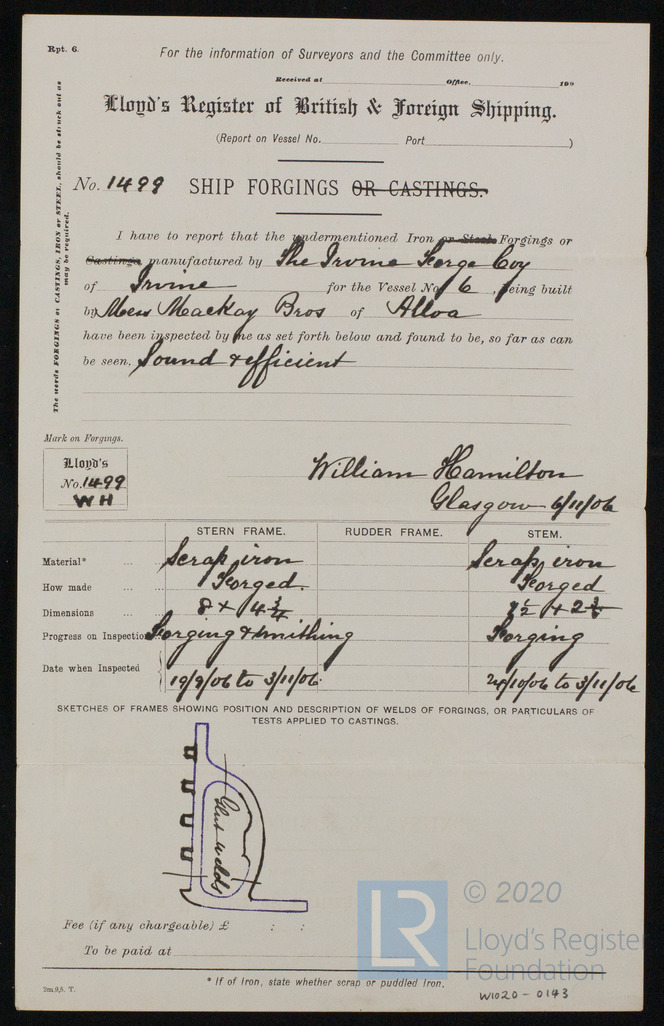 Rpt. 6.
For the information of Surveyors and the Committee only.
Received at Office, 190
Lloyd's Register of British & Foreign Shipping.
(Report on Vessel No. Port )
No. 1499 SHIP FORGINGS OR CASTINGS.
The words FORGINGS or CASTINGS, IRON or STEEL, should be struck out as may be required.
I have to report that the undermentioned Iron or Steel Forgings or
Castings manufactured by The Irvine Forge Coy
of Irvine for the Vessel No. 6, being built
by Mess Mackay Bros of Alloa
have been inspected by me as set forth below and found to be, so far as can
be seen, Sound & efficient
Mark on Forgings.
Lloyd's
No. 1499
WH
William Hamilton
Glasgow 6/11/06
STERN FRAME. RUDDER FRAME. STEM.
Material* ... Scrap iron Scrap iron
How made ... Forged. Forged
Dimensions ... 8 × 4 3/4
Progress on Inspection Forging & smithing Forging
Date when Inspected 19/9/06 to 3/11/06 24/10/06 to 3/11/06
SKETCHES OF FRAMES SHOWING POSITION AND DESCRIPTION OF WELDS OF FORGINGS, OR PARTICULARS OF
TESTS APPLIED TO CASTINGS.
Glut welds
Fee (if any chargeable) £ : :
To be paid at
* If of Iron, state whether scrap or puddled Iron.
2m,9,5. T.
W1020-0143
LR
© 2020
Lloyd's Register
Foundation